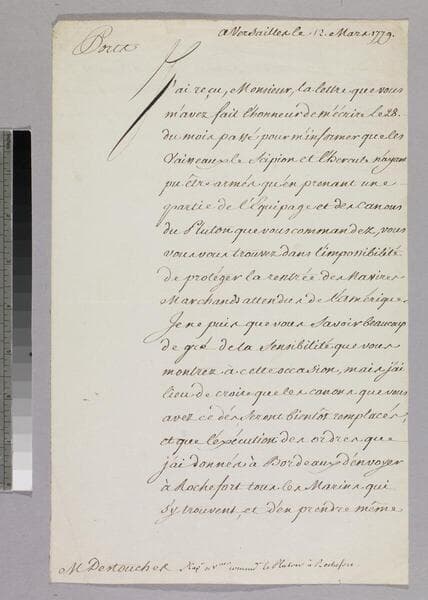 a Versailles le 12. Mars 1779.
J'ai reçu, Monsieur, la lettre que vous
m'avez fait l'honneur de m'écrire le 28.
du mois passé pour m'informer que les
Vaisseaux le Scipion et l'hercule n'ayant
pu être armés qu'en prenant une
partie de l'Equipage et des canons
du Pluton que vous commandez, vous
vous vous trouvez dans l'impossibilité
de protéger la rentrée des Navires
Marchands attendus de l'amérique.
Je ne puis que vous savoir beaucoup
de gré de la sensibilité que vous
montrez à cette occasion, mais j'ai
lieu de croire que les canons que vous
avez cédés seront bientôt remplacés,
et que l'exécution des ordres que
j'ai donnés à Bordeaux d'envoyer
à Rochefort tous les Marins qui
s'y trouvent, et d'en prendre même
M. Destouches Cap.e de V.au command.t le Pluton à Rochefort.